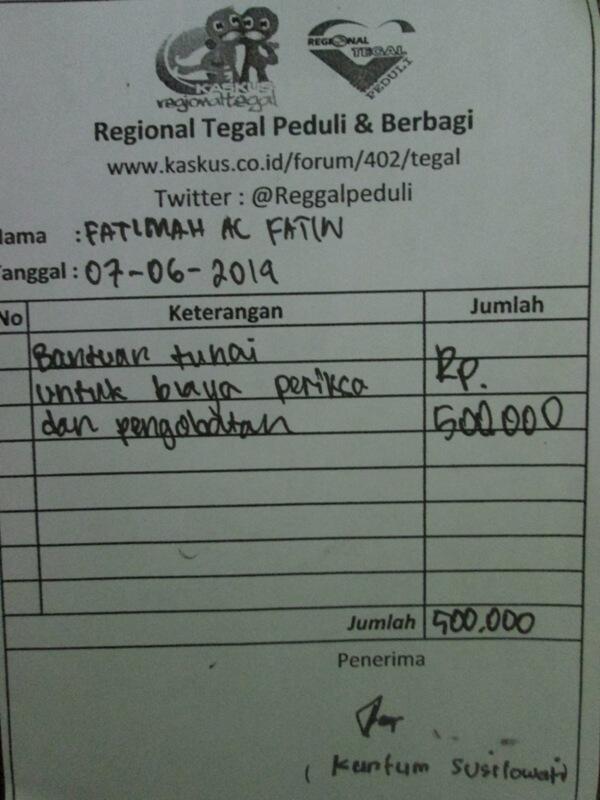 KASKUS
regionaltegal
REGIONAL
TEGAL
PEDULI
Regional Tegal Peduli & Berbagi
www.kaskus.co.id/forum/402/tegal
Twitter : @Reggalpeduli
Nama : FATIMAH AL FATIN
Tanggal : 07-06-2019
No Keterangan Jumlah
Bantuan tunai
untuk biaya periksa Rp.
dan pengobatan 500.000
Jumlah 500.000
Penerima
( Kuntum Susilowati)